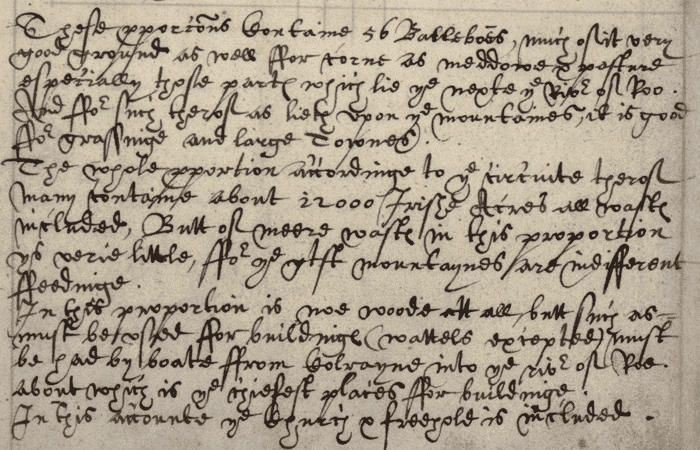 These pportons Containe 56 Balleboes, much of it very
good ground as well ffor corne as meddowe & pasture
especially those partes which lie ye nexte ye River of Roo.
And ffor such therof as lieth upon ye mountaines, it is good
ffor grassinge and large Townes.
The whole pportion accordinge to ye circuite therof
many containe about 12000 Irishe Acres all wasts
included, Butt of meere wasts in this proportion
ys verie little, ffor ye mountaynes are indifferent
ffeedinge.
In this proportion is noe woode att all, butt such as
must be used ffor buildings (wattels excepted) must
be had by boate ffrom Colrayne into ye river of Roe.
about which is ye chiefest places ffor buildinge.
In this accounte ye Church & freehold is included.